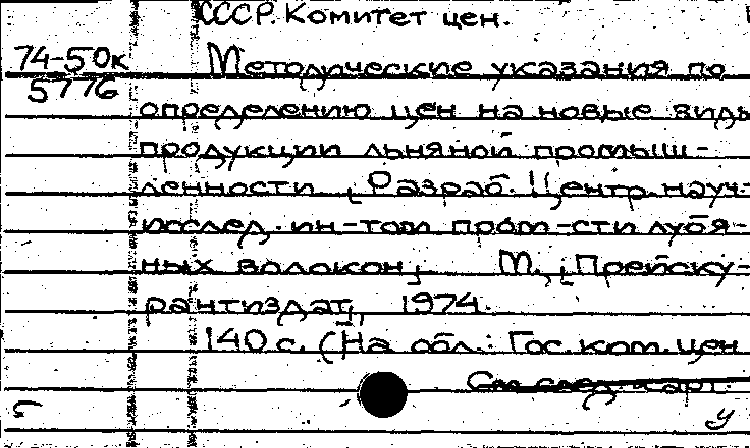 СССР. Комитет цен.
74-50к
5776
Методические указания по
определению цен на новые виды
продукции льняной промыш-
ленности [Разраб. Центр. науч.-
исслед. ин-том пром-сти лубя-
ных волокон]. М., [Прейску-
рантиздат], 1974.
140 с. (На обл.: Гос. ком. цен
См. след. карт.
у